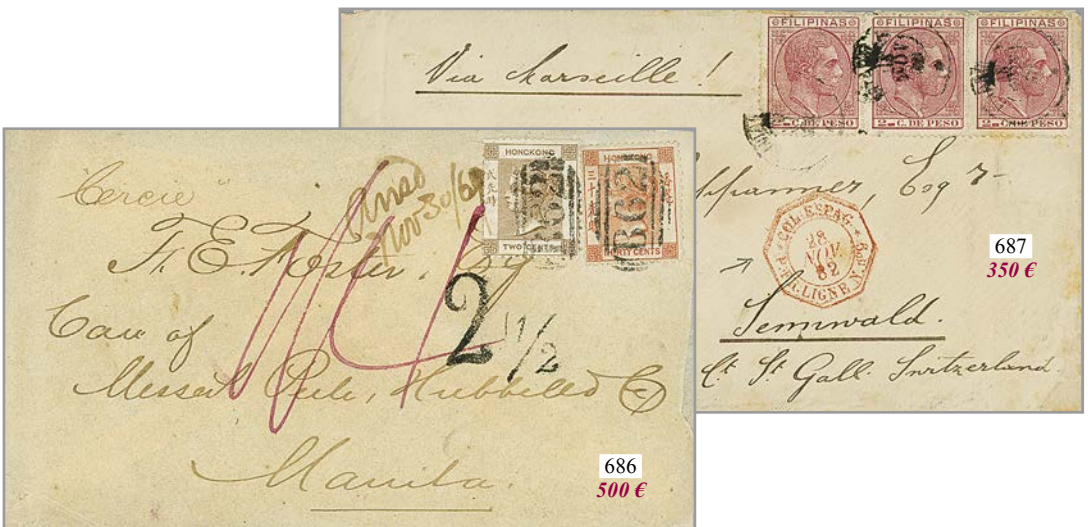 Via Marseille !
FILIPINAS FILIPINAS FILIPINAS
2 C. DE PESO 2 C. DE PESO 2 C. DE PESO
Esqr
COL. ESPAG.
28
NOV.
82
LIGNE N.
687
350 €
Sennwald.
Ct. St. Gall. Switzerland.
HONGKONG HONGKONG
TWO CENTS THIRTY CENTS
B62 B62
Nov 30/6
F. E. Foster, Esq
Care of
2 11/2
Messrs Peele, Hubbell & Co
Manila.
686
500 €